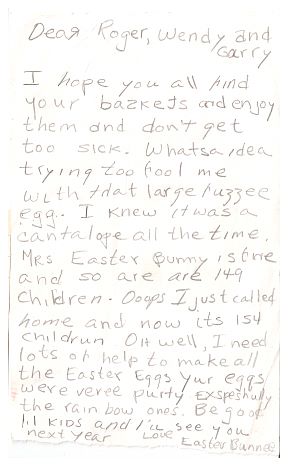 Dear Roger, Wendy and
Garry
I hope you all find
your bazkets and enjoy
them and don't get
too sick. Whatsa idea
trying too fool me
with that large fuzzee
egg. I knew it was a
cantalope all the time.
Mrs Easter Bunny is fine
and so are are 149
children. Ooops I just called
home and now its 154
childrun Oh well, I need
lots of help to make all
the Easter Eggs yur eggs
were veree purty exspeshully
the rain bow ones. Be good
lil kids and I'll see you
next year Love Easter Bunnee